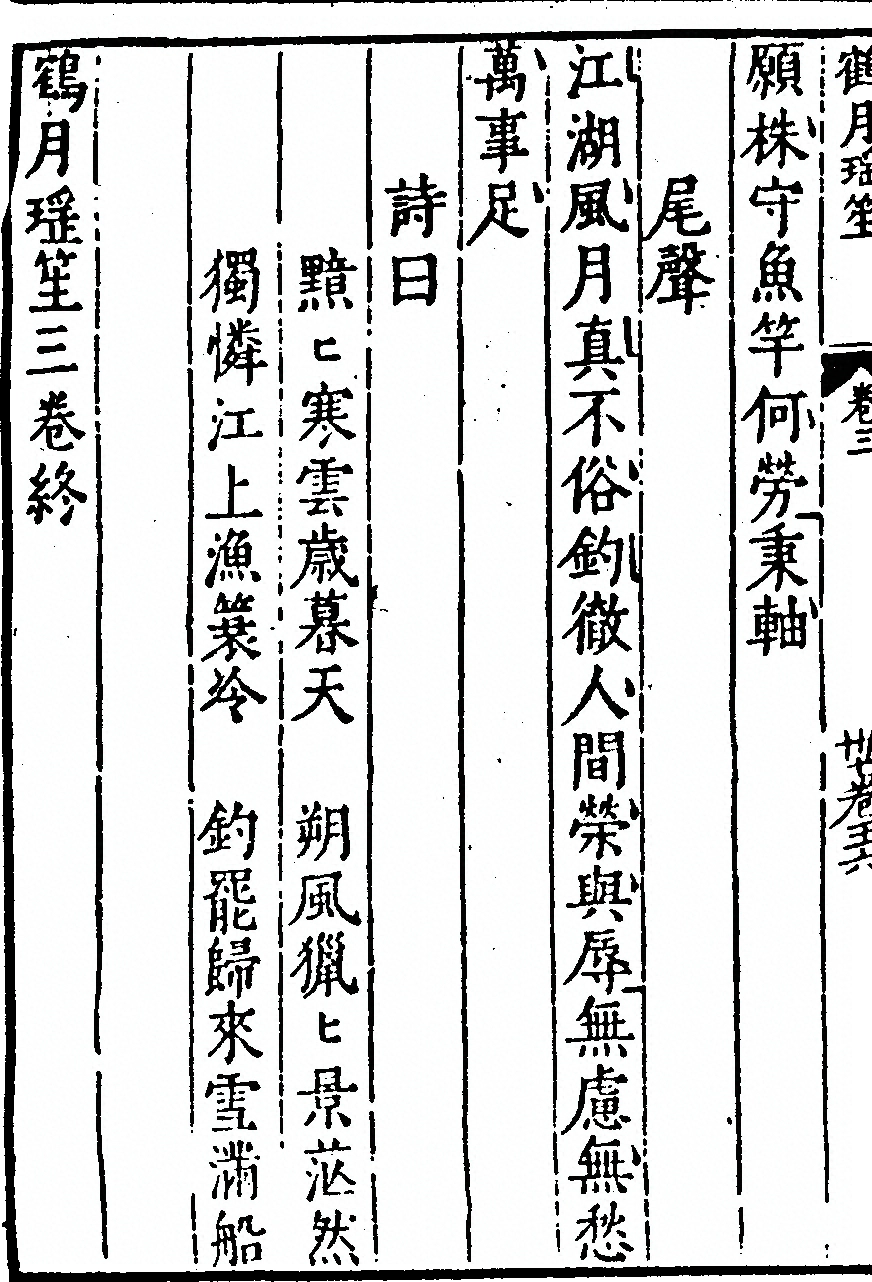 鶴月瑶笙
卷三
願株守魚竿何勞秉軸
尾聲
江湖風月真不俗釣徹人間榮與辱無慮無愁
萬事足
詩曰
黯匕寒雲歳暮天 朔風獵匕景茫然
獨憐江上漁簑冷 釣罷歸來雪滿船
鶴月瑶笙三卷終